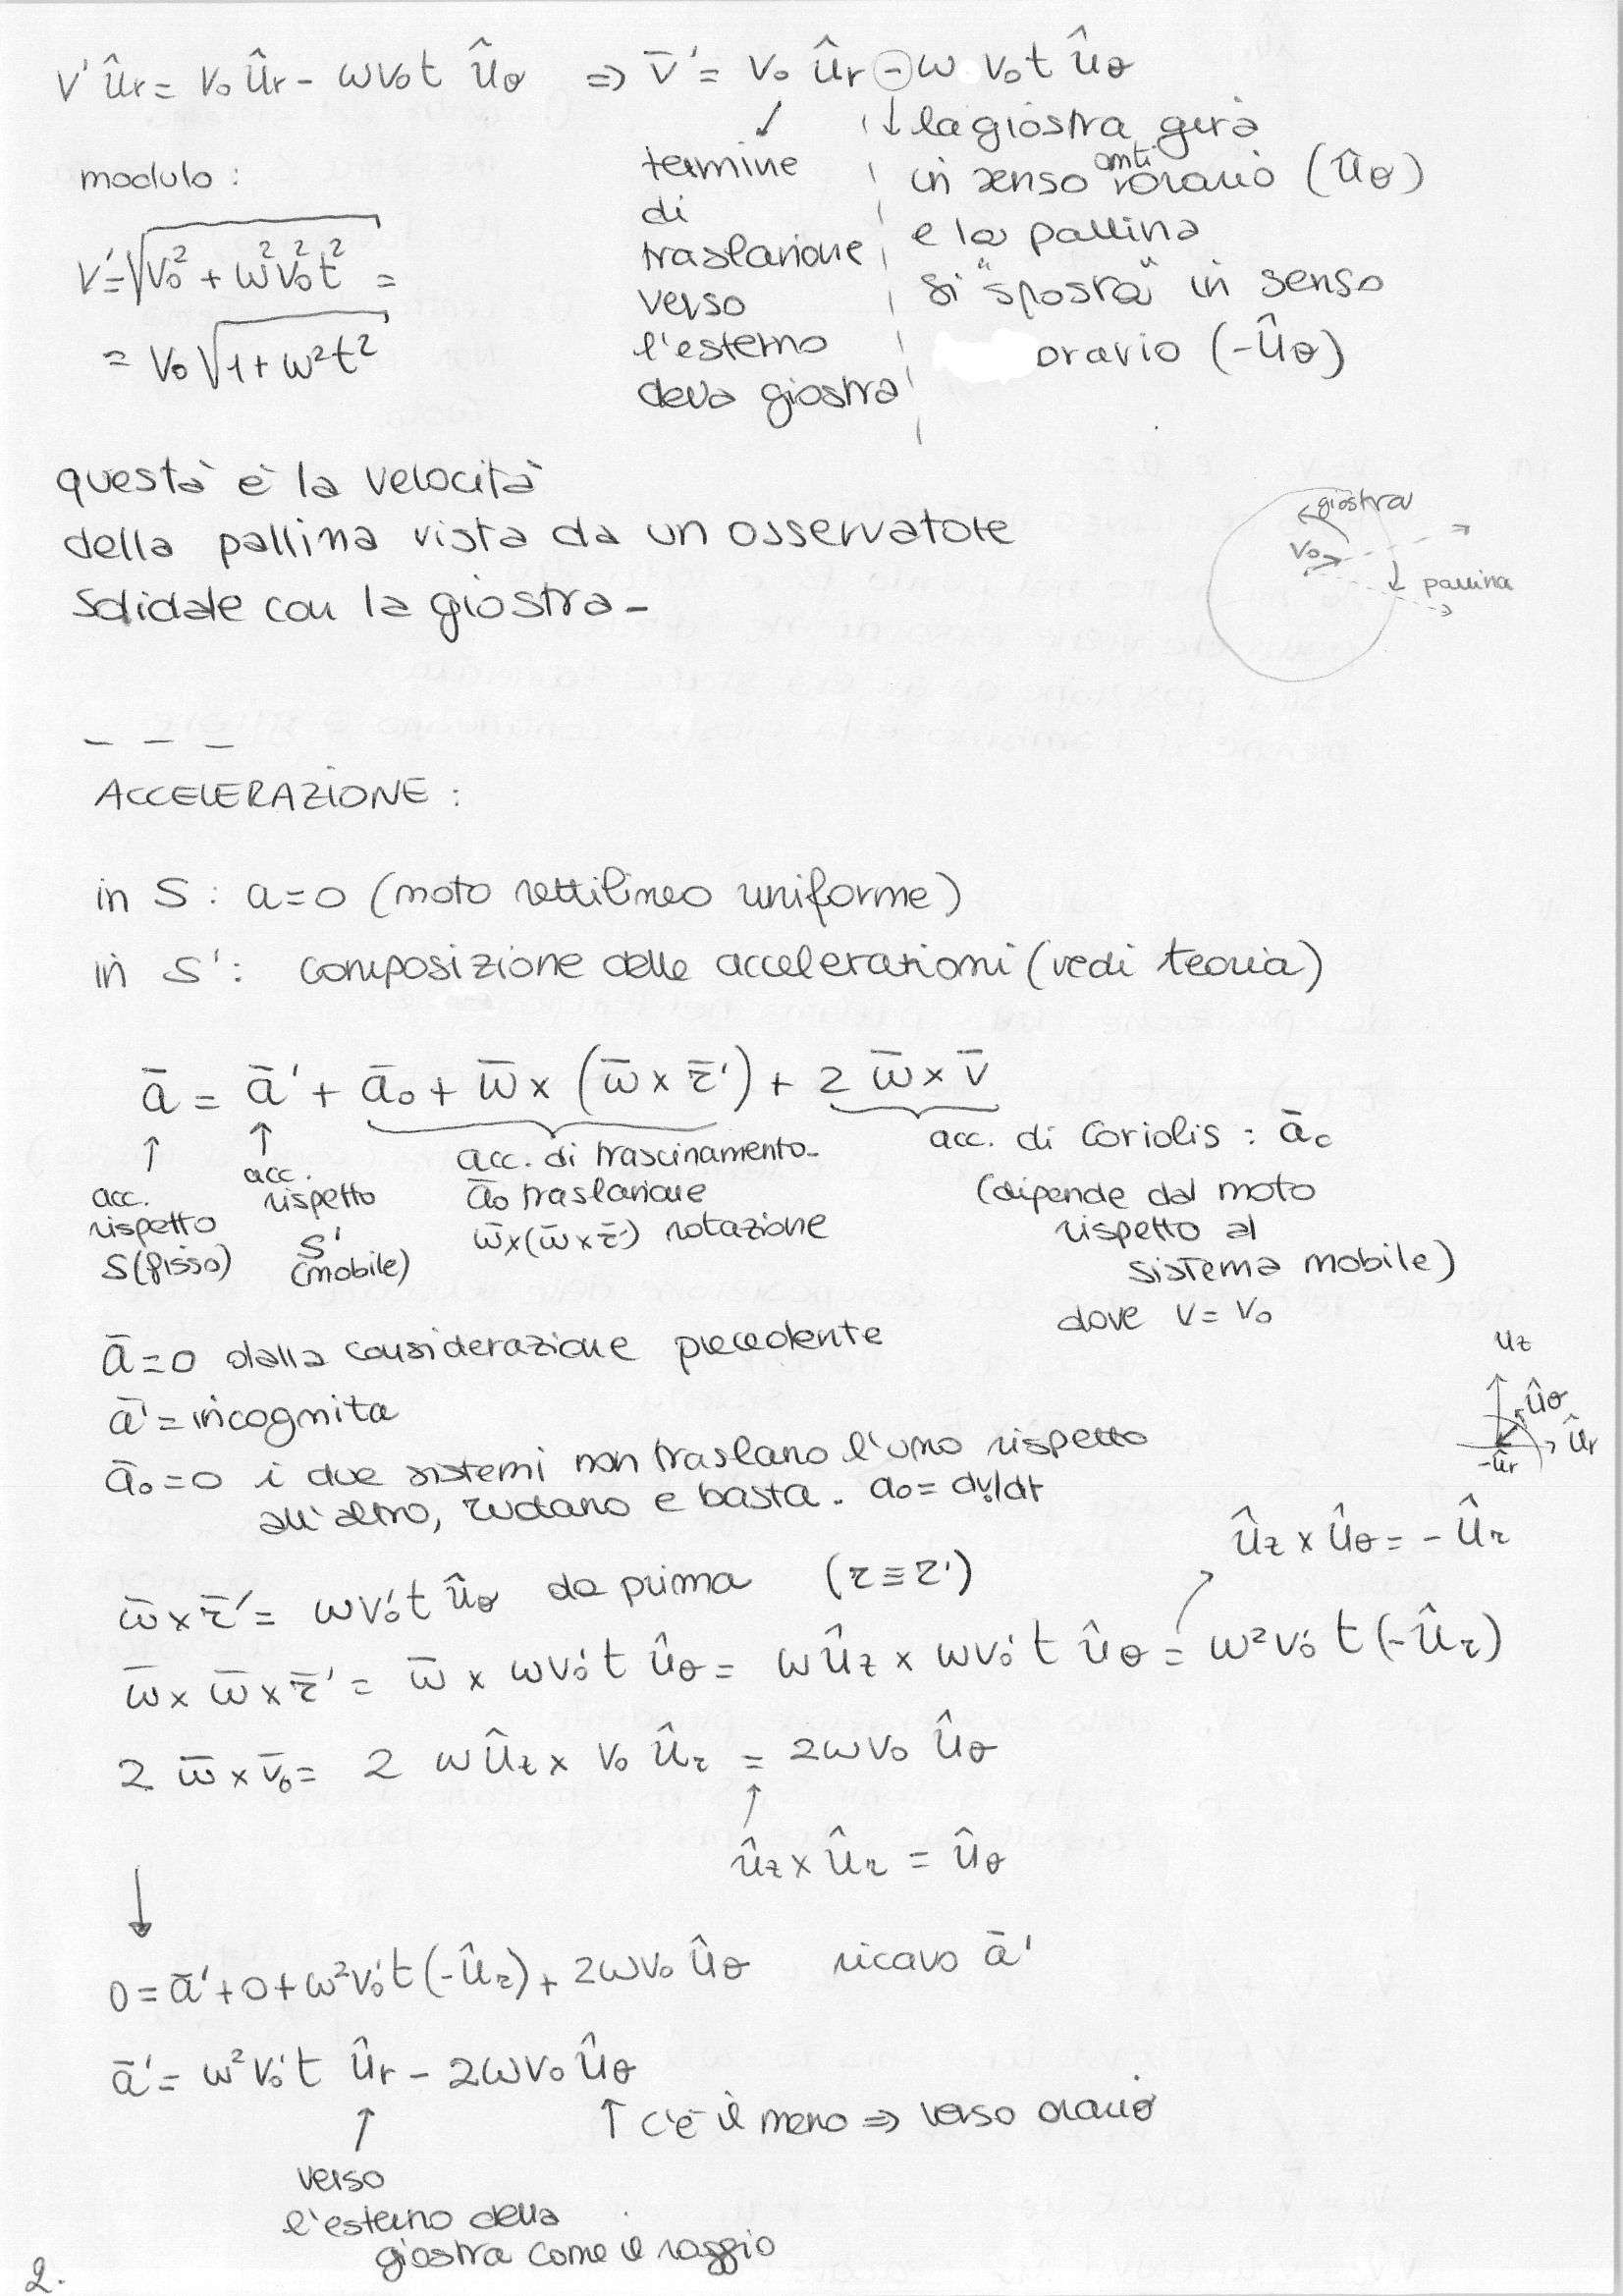 v' ûr = v₀ ûr - ωv₀t ûθ ⇒ v̄' = v₀ ûr - ω v₀t ûθ
modulo :
v' = √(v₀² + ω²v₀²t²) =
= v₀ √(1 + ω²t²)
termine
di
traslazione
verso
l'esterno
della giostra
la giostra gira
in senso antiorario (ûθ)
e la pallina
si "sposta" in senso
orario (-ûθ)
questa è la velocità
della pallina vista da un osservatore
solidale con la giostra -
giostra
v₀
pallina
- - -
ACCELERAZIONE :
in S : a = 0 (moto rettilineo uniforme)
in S' : composizione delle accelerazioni (vedi teoria)
ā = ā' + ā₀ + ω̄ x (ω̄ x r̄') + 2 ω̄ x v̄
acc.
rispetto
S (fisso)
acc.
rispetto
S'
(mobile)
acc. di trascinamento -
ā₀ traslazione
ω̄x(ω̄xr̄') rotazione
acc. di Coriolis : ā꜀
(dipende dal moto
rispetto al
sistema mobile)
dove v = v₀
ā = 0 dalla considerazione precedente
ā' = incognita
ā₀ = 0 i due sistemi non traslano l'uno rispetto
all'altro, ruotano e basta. a₀ = dv₀/dt
uz
ûθ
ûr
-ûr
ûz x ûθ = - ûr
ω̄ x r̄' = ωv₀'t ûθ da prima (r ≡ r')
ω̄ x ω̄ x r̄' = ω̄ x ωv₀'t ûθ = ωûz x ωv₀'t ûθ = ω²v₀'t (-ûr)
2 ω̄ x v̄₀ = 2 ωûz x v₀ ûr = 2ωv₀ ûθ
ûz x ûr = ûθ
0 = ā' + 0 + ω²v₀'t (-ûr) + 2ωv₀ ûθ ricavo ā'
ā' = ω²v₀'t ûr - 2ωv₀ ûθ
↑ c'è il meno ⇒ verso orario
verso
l'esterno della
giostra come il raggio
2.